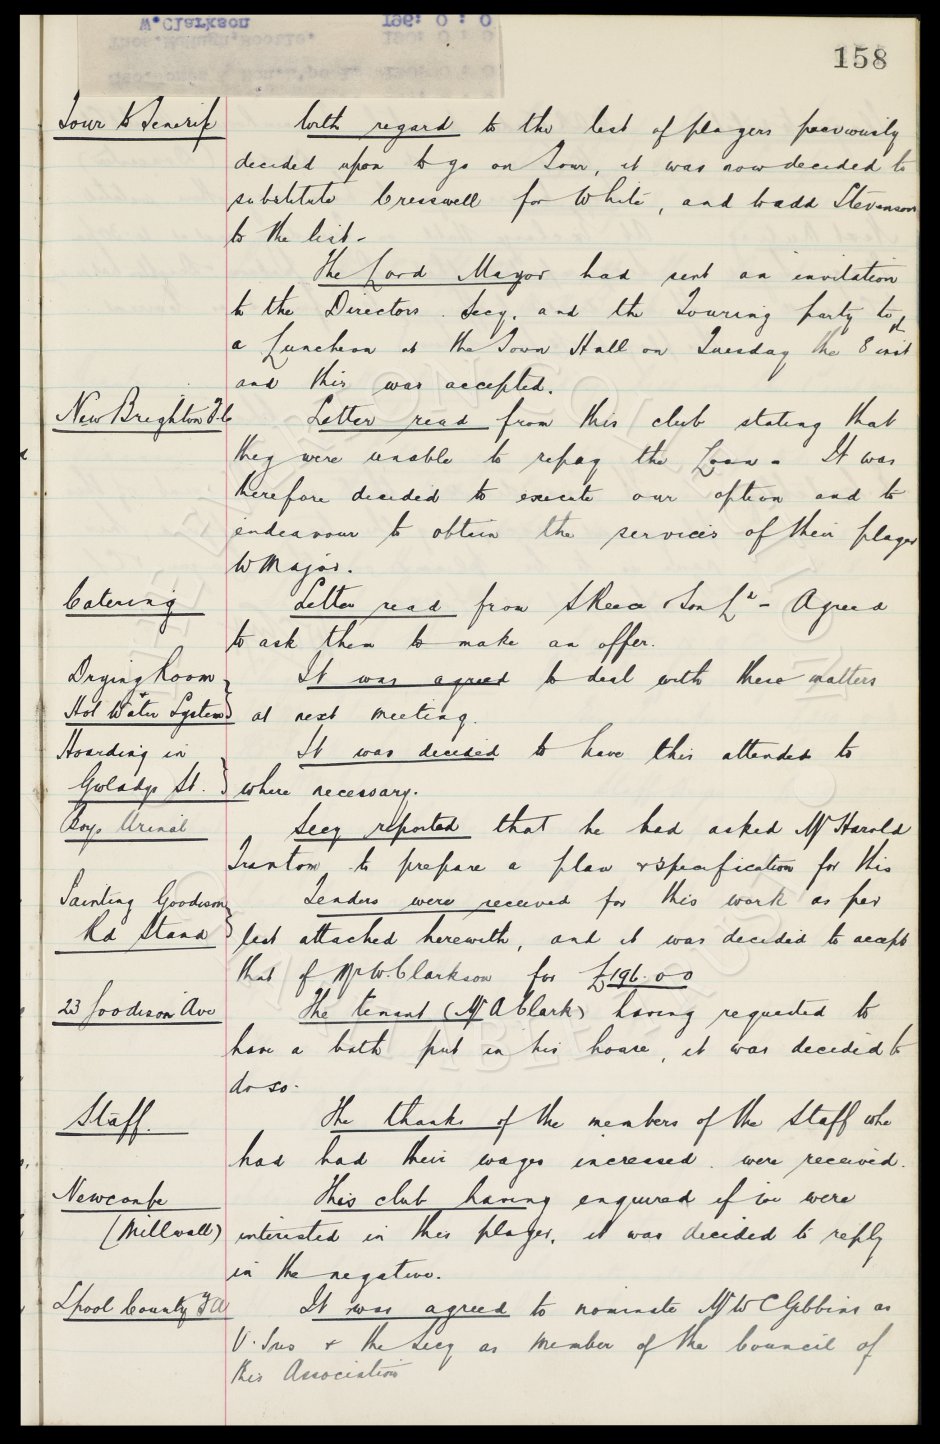 158
W.Clarkson 196: 0 : 0
Tour to Tenerife
With regard to the list of players previously
decided upon to go on Tour, it was now decided to
substitute Cresswell for White, and to add Stevenson
to the list -
The Lord Mayor had sent an invitation
to the Directors. Secy. and the Touring party to
a Luncheon at the Town Hall on Tuesday the 8th inst
and this was accepted.
New Brighton F.C
Letter read from this club stating that
they were unable to repay the Loan - It was
therefore decided to execute our option and to
endeavour to obtain the services of their player
W Major.
Catering
Letter read from S Reece & Son Ld - Agreed
to ask them to make an offer.
Drying Room
+
Hot Water System
It was agreed to deal with these matters
at next meeting.
Hoarding in
Gwladys St.
It was decided to have this attended to
where necessary.
Boys Urinal
Secy reported that he had asked Mr Harold
Tranton to prepare a plan & specification for this
Painting Goodison
Rd Stand
Tenders were received for this work as per
list attached herewith, and it was decided to accept
that of Mr W. Clarkson for £196.0.0
23 Goodison Ave
The tenant (Mr A Clark) having requested to
have a bath put in his house, it was decided to
do so.
Staff.
The thanks of the members of the Staff who
had had their wages increased were received.
Newcombe
(Millwall)
This club having enquired if we were
interested in this player, it was decided to reply
in the negative.
L'pool County F A
It was agreed to nominate Mr W C Gibbins as
V. Pres & the Secy as member of the Council of
this Association